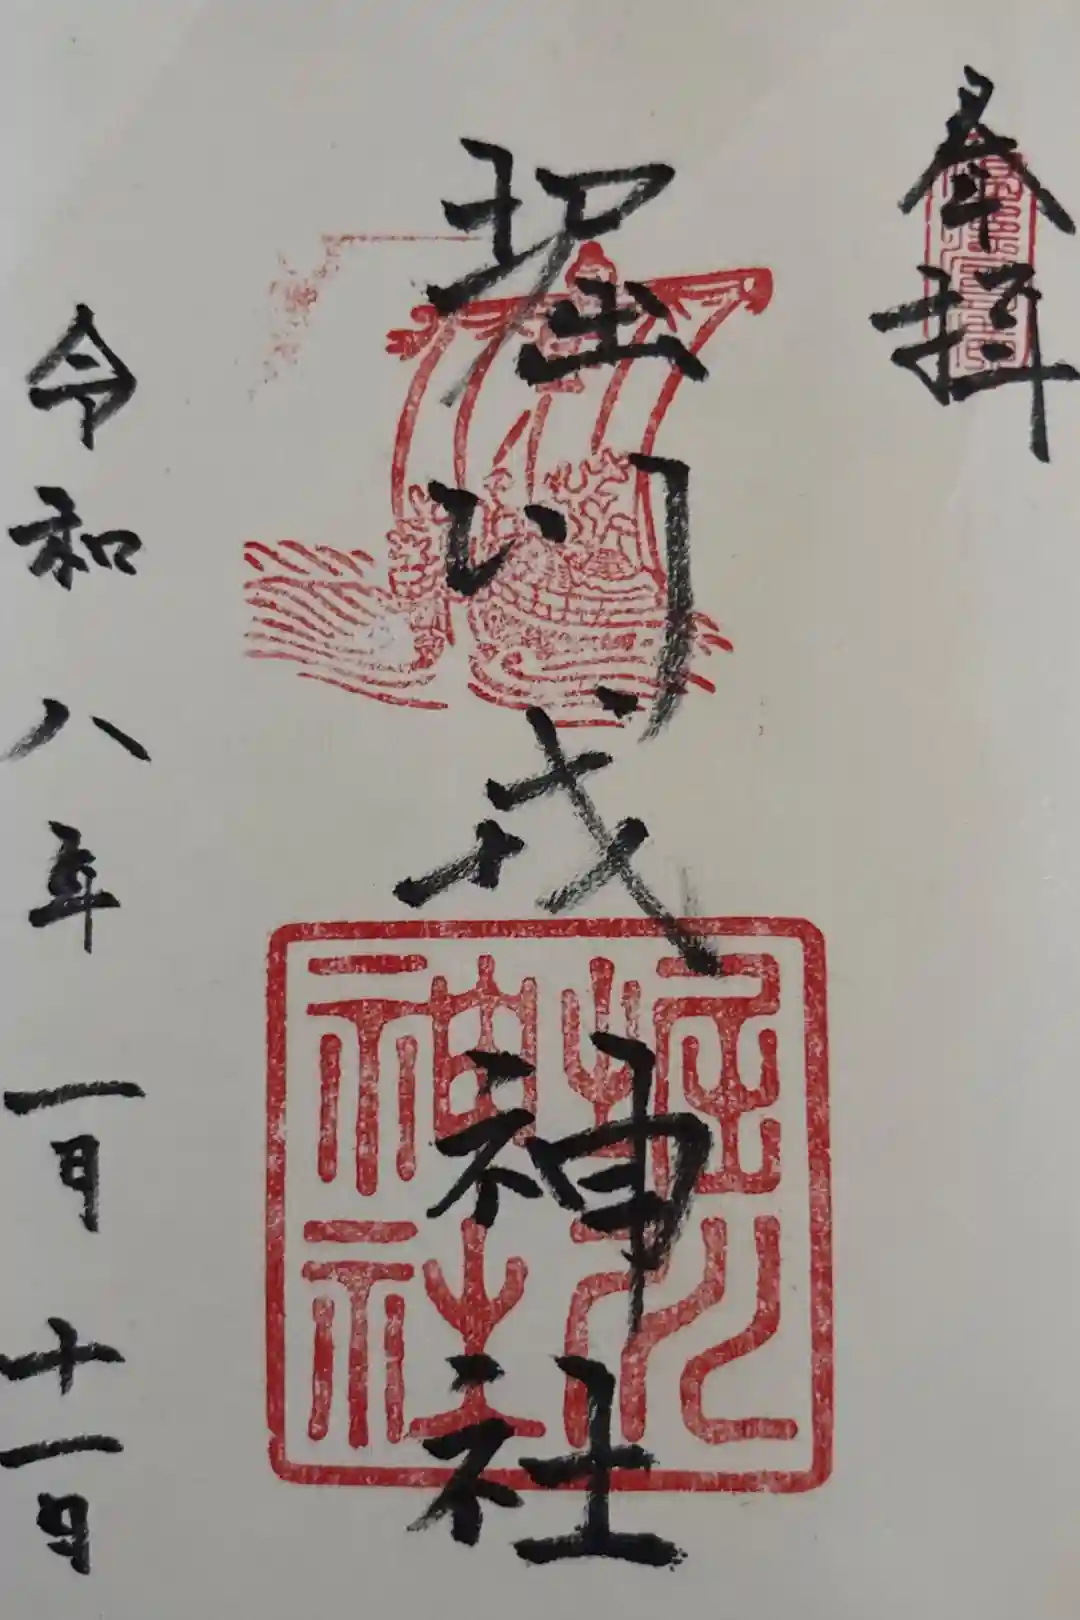 奉拝
堀川戎神社
堀川神社
令和八年一月十一日